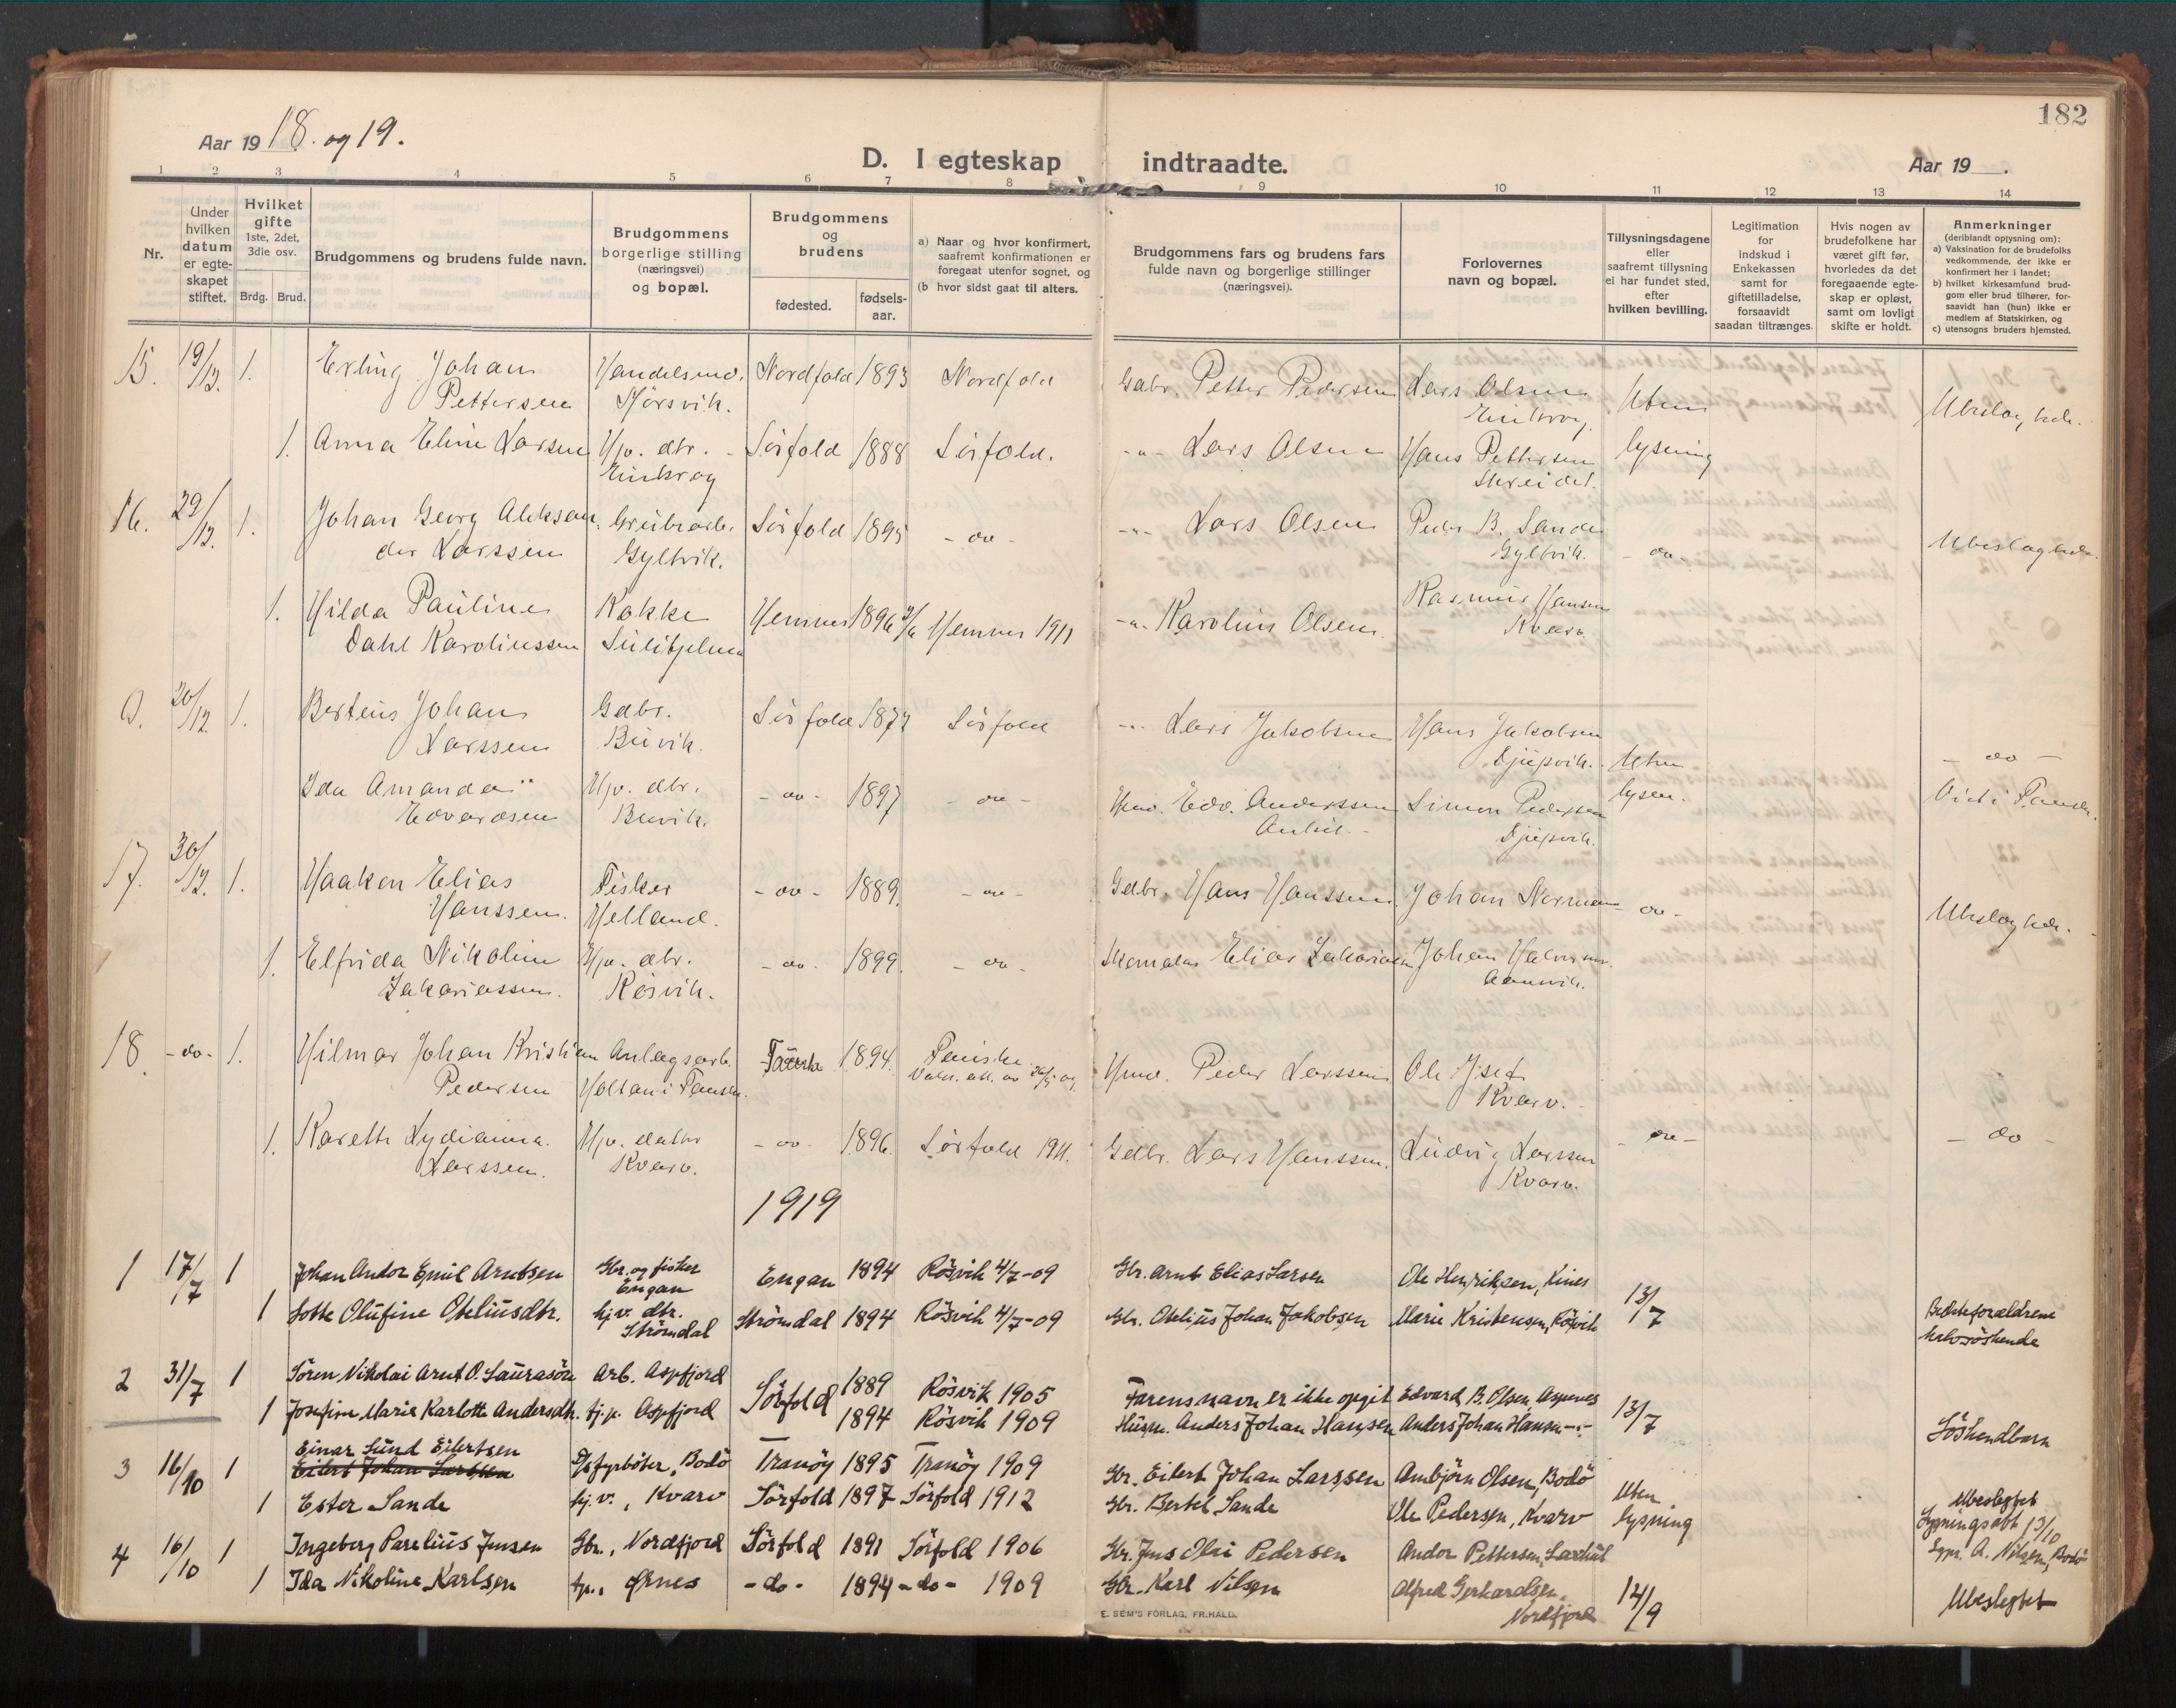 182
Aar 1918. og 19.
D. I egteskap indtraadte.
Aar 19 .
1 2 3 4 5 6 7 8 9 10 11 12 13 14
Nr.
Under hvilken datum er egte-skapet stiftet.
Hvilket gifte 1ste, 2det, 3die osv.
Brdg. Brud.
Brudgommens og brudens fulde navn.
Brudgommens borgerlige stilling (næringsvei) og bopæl.
Brudgommens og brudens
fødested.
fødsels-aar.
a) Naar og hvor konfirmert, saafremt konfirmationen er foregaat utenfor sognet, og
(b hvor sidst gaat til alters.
Brudgommens fars og brudens fars fulde navn og borgerlige stillinger (næringsvei).
Forlovernes navn og bopæl.
Tillysningsdagene eller saafremt tillysning ei har fundet sted, efter hvilken bevilling.
Legitimation for indskud i Enkekassen samt for giftetilladelse, forsaavidt saadan tiltrænges.
Hvis nogen av brudefolkene har været gift før, hvorledes da det foregaaende egte-skap er opløst, samt om lovligt skifte er holdt.
Anmerkninger
(deriblandt opjysning om):
a) Vaksination for de brudefolks vedkommende, der ikke er konfirmert her i landet;
b) hvilket kirkesamfund brud-gom eller brud tilhører, for-saavidt han (hun) ikke er medlem af Statskirken, og
c) utensogns bruders hjemsted.
15. 19/12. 1. Erling Johan Handelsmd. Nordfold 1893 Nordfold Gdbr. Petter Pedersen Lars Olsen Uten
Pettersen Mørsvik.
1. Anna Eline Larsen Hjv. dtr. Sørfold 1888 Sørfold. -"- Lars Olsen Hans Pettersen lysning
16. 29/12. 1. Johan Georg Aleksan Grubearb. Sørfold 1895 - do - -"- Lars Olsen Peder B. Sande
der Larssen Gyltvik. Gyltvik. - do -
1. Hilda Pauline Kokke Hemnes 1896 Hemnes 1911 -"- Karolius Olsen Rasmus Hansen
Dahl Karoliussen Sulitjelma Kvarv.
0. 20/12. 1. Berteus Johan Gdbr. Sørfold 1877 Sørfold -"- Lars Jakobsen Hans Jakobsen
Larssen Buvik. Djupvik. Uten - do -
Ida Amanda Hjv. dtr. - do - 1897 - do - Edv. Anderssen Simon Pedersen lysn.
Edvardsen Buvik. Djupvik.
17. 30/12. 1. Haaken Elias Fisker - do - 1889. - do - Gdbr. Hans Hanssen Johan Norman - do -
Hanssen. Helland.
1. Elfrida Nikoline Hjv. dtr. - do - 1899. - do - Skomaker Elias Zakariassen Johan
Zakariassen. Røsvik.
18. - do - 1. Hilmar Johan Kristian Anlægsarb. Fauske 1894. Fauske Peder Larssen Ole
Pedersen Holtan i Fauske. Kvarv.
1. Karethe Lydianna Hjv. datter - do - 1896. Sørfold 1911. Gdbr. Lars Hanssen. Ludvig Larssen - do - - do -
Larssen. Kvarv. Kvarv.
1919
1 17/7 1 Johan Andor Emil Arntsen Gbr. og fisker Engan Engan 1894 Røsvik 4/7-09 Gbr. Arnt Elias Larsen Ole Henriksen, Kines 13/7
1 Lotte Olufine Oteliusdtr. hjv. dtr. Strømdal Strømdal 1894 Røsvik 4/7-09 Gbr. Otelius Johan Jakobsen Marie Kristensen, Røsvik Bedsteforældrene halvsøskende
2 31/7 1 Søren Nikolai Arnt O. Laurasøn Arb. Aspfjord Sørfold 1889 Røsvik 1905 Farens navn er ikke opgit Edvard B. Olsen, Aspenes 13/7
1 Josefine Marie Karlotte Andersdtr. tj.p. Aspfjord 1894 Røsvik 1909 Husm. Anders Johan Hansen Anders Johan Hansen -"- Søskendbarn
Einar Sund Eilertsen
3 16/10 1 Eilert Johan Larssen fyrbøter, Bodø Tranøy 1895 Tranøy 1909 Gbr. Eilert Johan Larssen Arnbjørn Olsen, Bodø Uten
1 Ester Sande hj.v., Kvarv Sørfold 1897 Sørfold 1912 Gbr. Bertel Sande Ole Pedersen, Kvarv lysning Ubeslegtet
Lysningsatt 13/10
Sgpr. A. Nilsen, Bodø
4 16/10 1 Ingeberg Parelius Jensen Gbr., Nordfjord Sørfold 1891 Sørfold 1906 Gbr. Jens Olai Pedersen Andor Pettersen,
1 Ida Nikoline Karlsen tp., Ørnes - do - 1894 - do - 1909 Gbr. Karl Nilsen Alfred Gerhardsen, Nordfjord 14/9 Ubeslegtet
E. SEM'S FORLAG, FR.HALD.